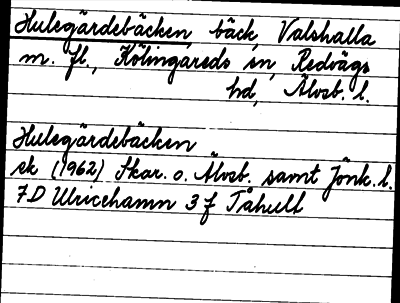 Hulegärdebäcken, bäck, Valshalla
m. fl., Kölingareds sn, Redvägs
hd, Älvsb. l.
Hulegärdebäcken
ek (1962) Skar. o. Älvsb. samt Jönk. l.
7D Ulricehamn 3 f Tåhult